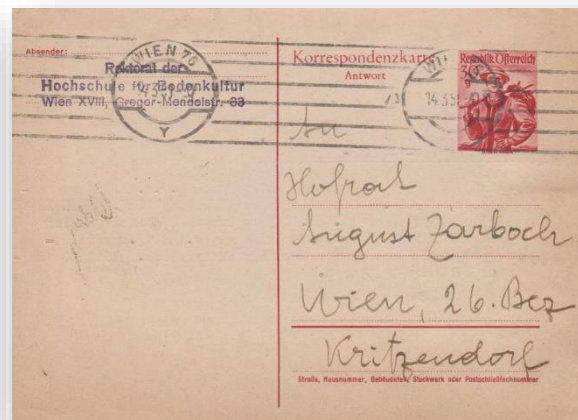 Absender:
Rektorat der
Hochschule für Bodenkultur
Wien XVIII, Gregor-Mendelstr. 33
WIEN 76
Y
Korrespondenzkarte
Antwort
Republik Österreich
14.3.51
An
Hofrat
August Zarboch
Wien, 26. Bez
Kritzendorf
Straße, Hausnummer, Gebäudeteil, Stockwerk oder Postschließfachnummer